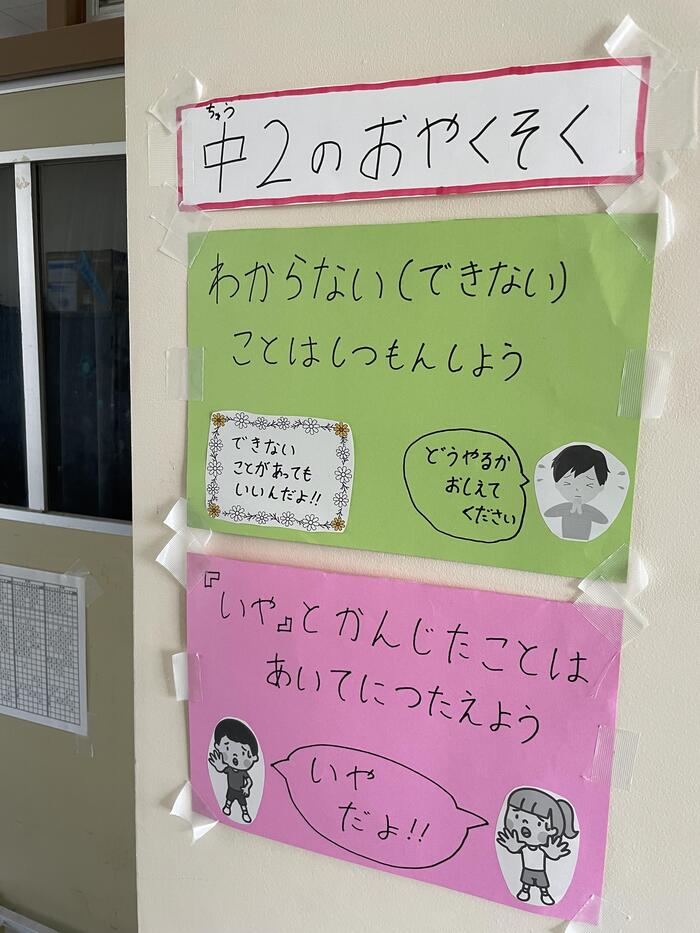 ちゅう
中2のおやくそく
わからない(できない)
ことはしつもんしよう
できない
ことがあっても
いいんだよ!!
どうやるか
おしえて
ください
『いや』とかんじたことは
あいてにつたえよう
いや
だよ!!